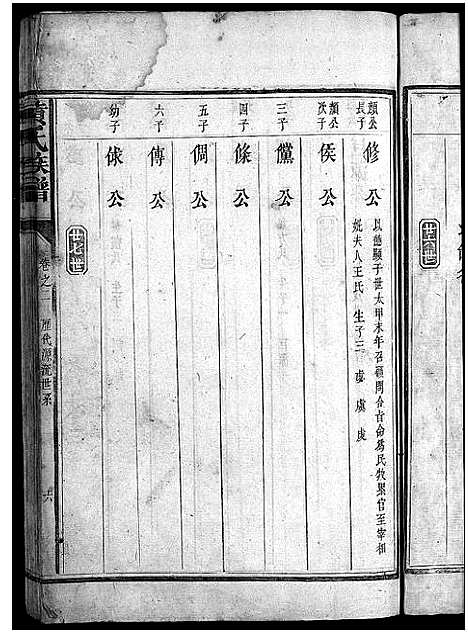 世六世
顥公長子
修公
以德顯于世太甲末年召顧問
官至宰相
妣夫人王氏 生子三
顥公次子
侯公
三子
儻公
四子
條公
五子
倜公
六子
傳公
幼子
俅公
世七世
黄氏族譜
卷之二
歷代源流世系
六